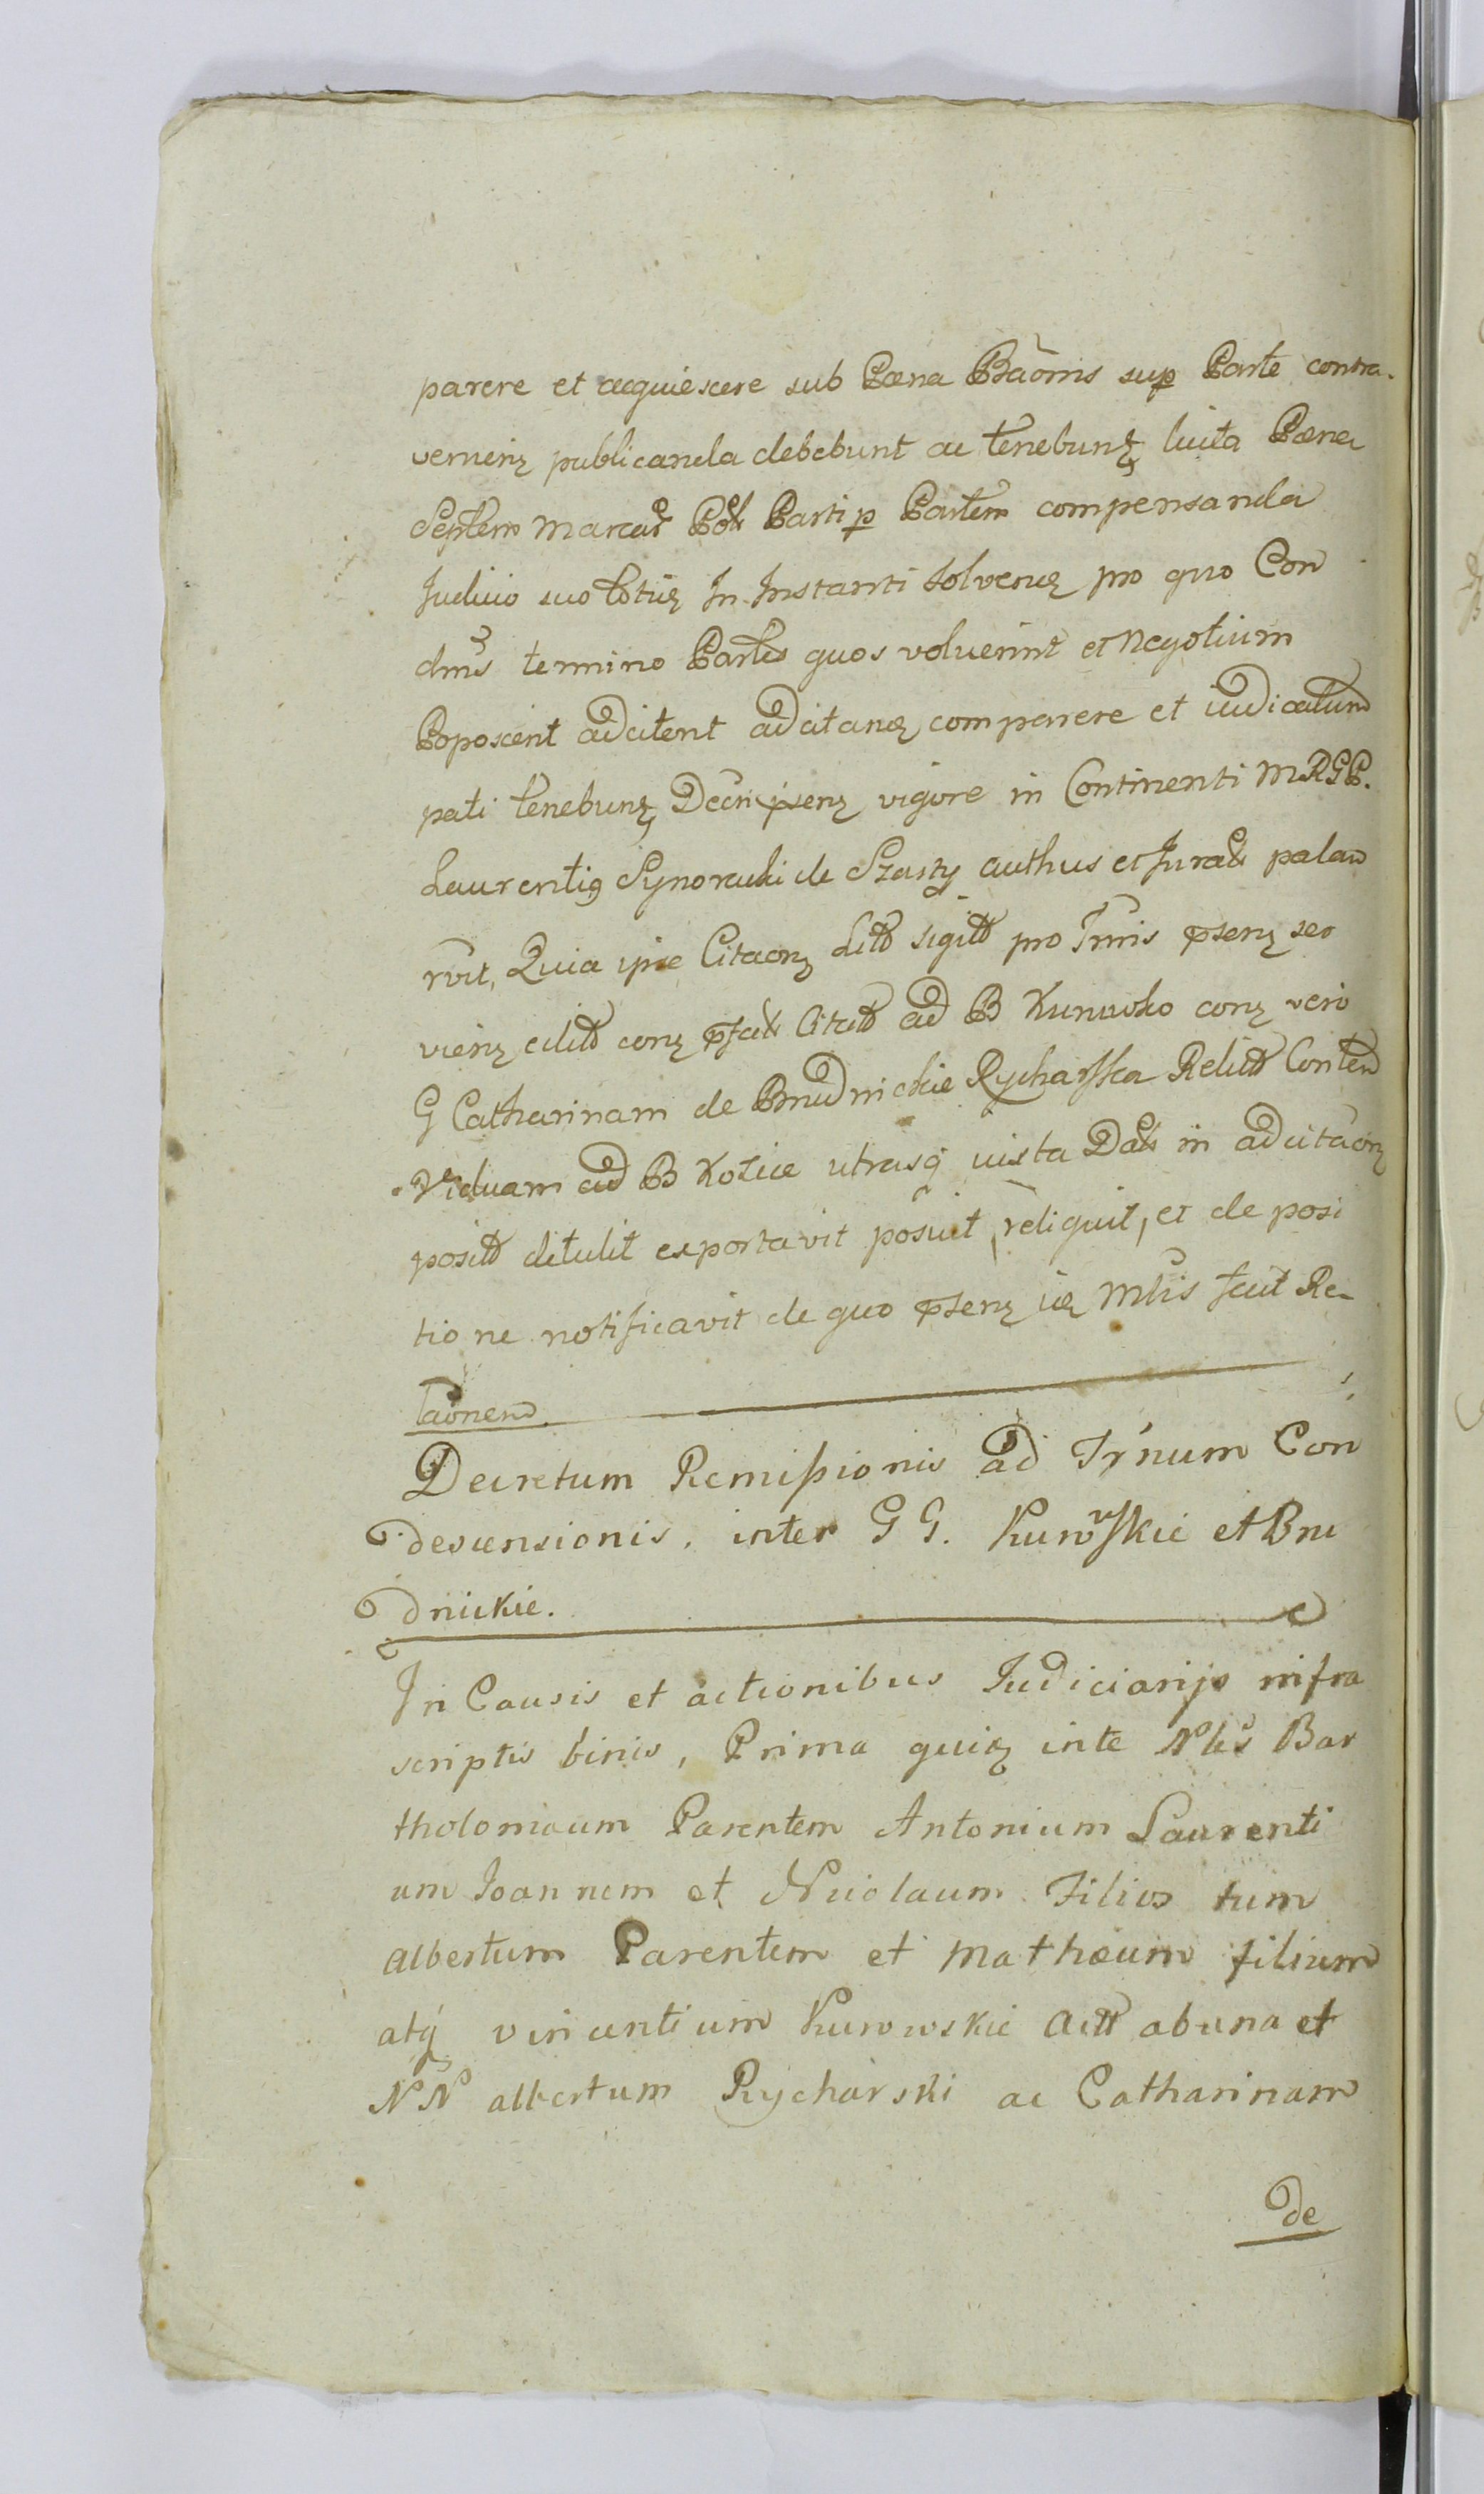 parere et acquiescere sub Pœna Baõnis sup Parte contra-
venienꝫ publicanda debebunt ac tenebunꝫ luita Pœna
Septem Marcar Pol Parti p Partem compensanda
Judicio suo totieꝫ In Instanti solvenꝫ pro quo Con
dnis termino Partes quos voluerint et Negotium
Poposcent adcitent adcitanꝫ comparere et iudicatum
pati tenebunꝫ Decri psenꝫ vigore in Continenti MRGP.
Laurentiꝰ Synoracki de Szasty authus et Jurat palam
rvit, Quia ipse Citaonꝫ Litt sigitt pro Trmis psenꝫ ser
vienꝫ editt conꝫ pfat Citatt ad B Kurowko conꝫ vero
G Catharinam de Brudnickie Rycharska Relict Conten
Viduam ad B Kosice utrasq iuxta Dat in adcitaonꝫ
positt detulit exportavit posuit, reliquit, et de posi
tione notificavit de quo psenꝫ ieꝫ Mtris fecit Re-
laõnem.
Decretum Remissionis ad Tr̃num Con
descensionis, inter GG. Kurowskie et Bru
dnickie.
In Causis et actionibus Iudiciarijs infra
scriptis binis, Prima quiꝫ inte Nbĩs Bar
tholomæum Parentem Antonium Laurenti
um Joannem et Nicolaum Filios tum
Albertum Parentem et Mathæum filium
atq vincentium Kurowskie Actt ab una et
NN Albertum Rycharski ac Catharinam
de